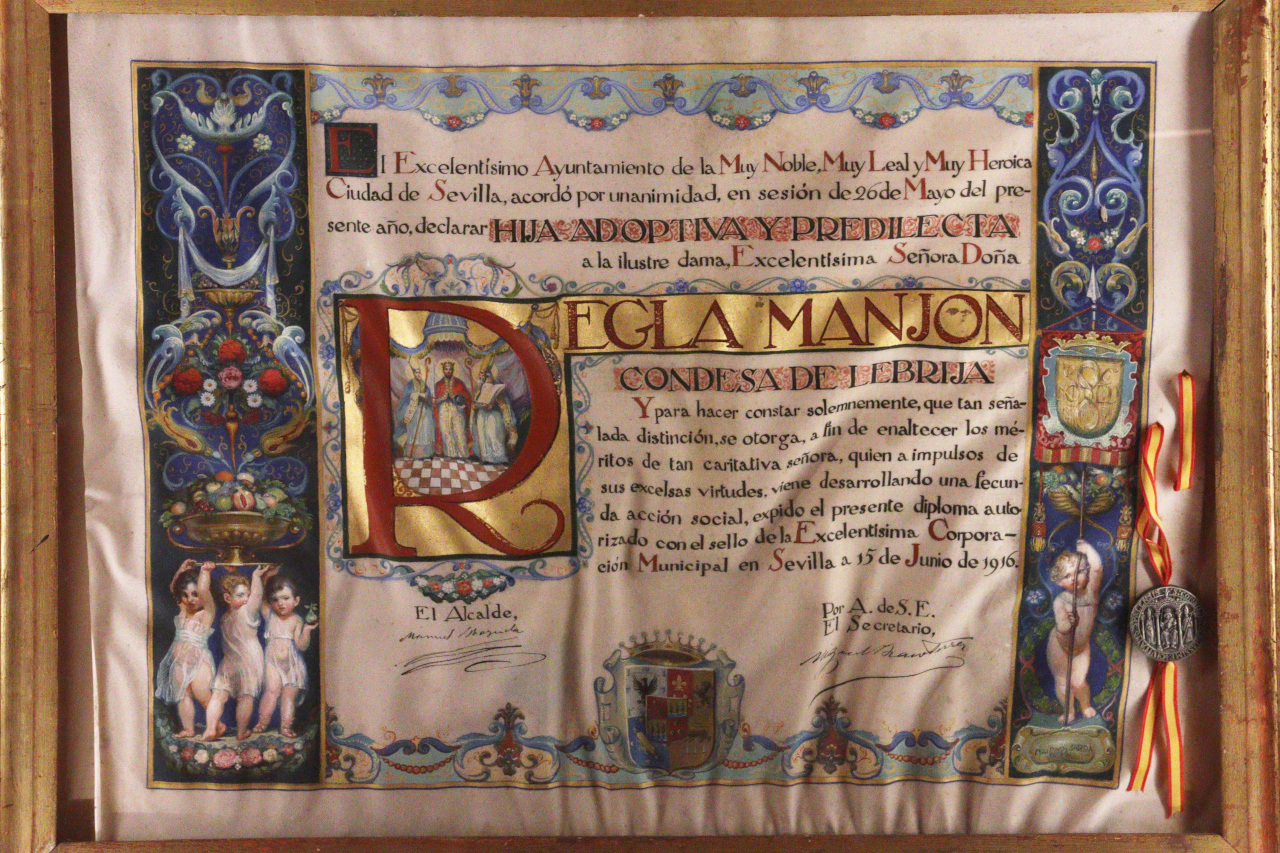 El Excelentísimo Ayuntamiento de la Muy Noble, Muy Leal y Muy Heroica
Ciudad de Sevilla, acordó por unanimidad, en sesión de 26 de Mayo del pre-
sente año, declarar HIJA ADOPTIVA Y PREDILECTA
a la ilustre dama, Excelentísima Señora Doña
REGLA MANJON
CONDESA DE LEBRIJA
Y para hacer constar solemnemente, que tan seña-
lada distinción, se otorga, a fin de enaltecer los mé-
ritos de tan caritativa señora, quien a impulsos de
sus excelsas virtudes, viene desarrollando una fecun-
da acción social, expido el presente diploma auto-
rizado con el sello de la Excelentísima Corpora-
ción Municipal en Sevilla a 15 de Junio de 1916.
El Alcalde,
Manuel
Por A. de S. E.
El Secretario,